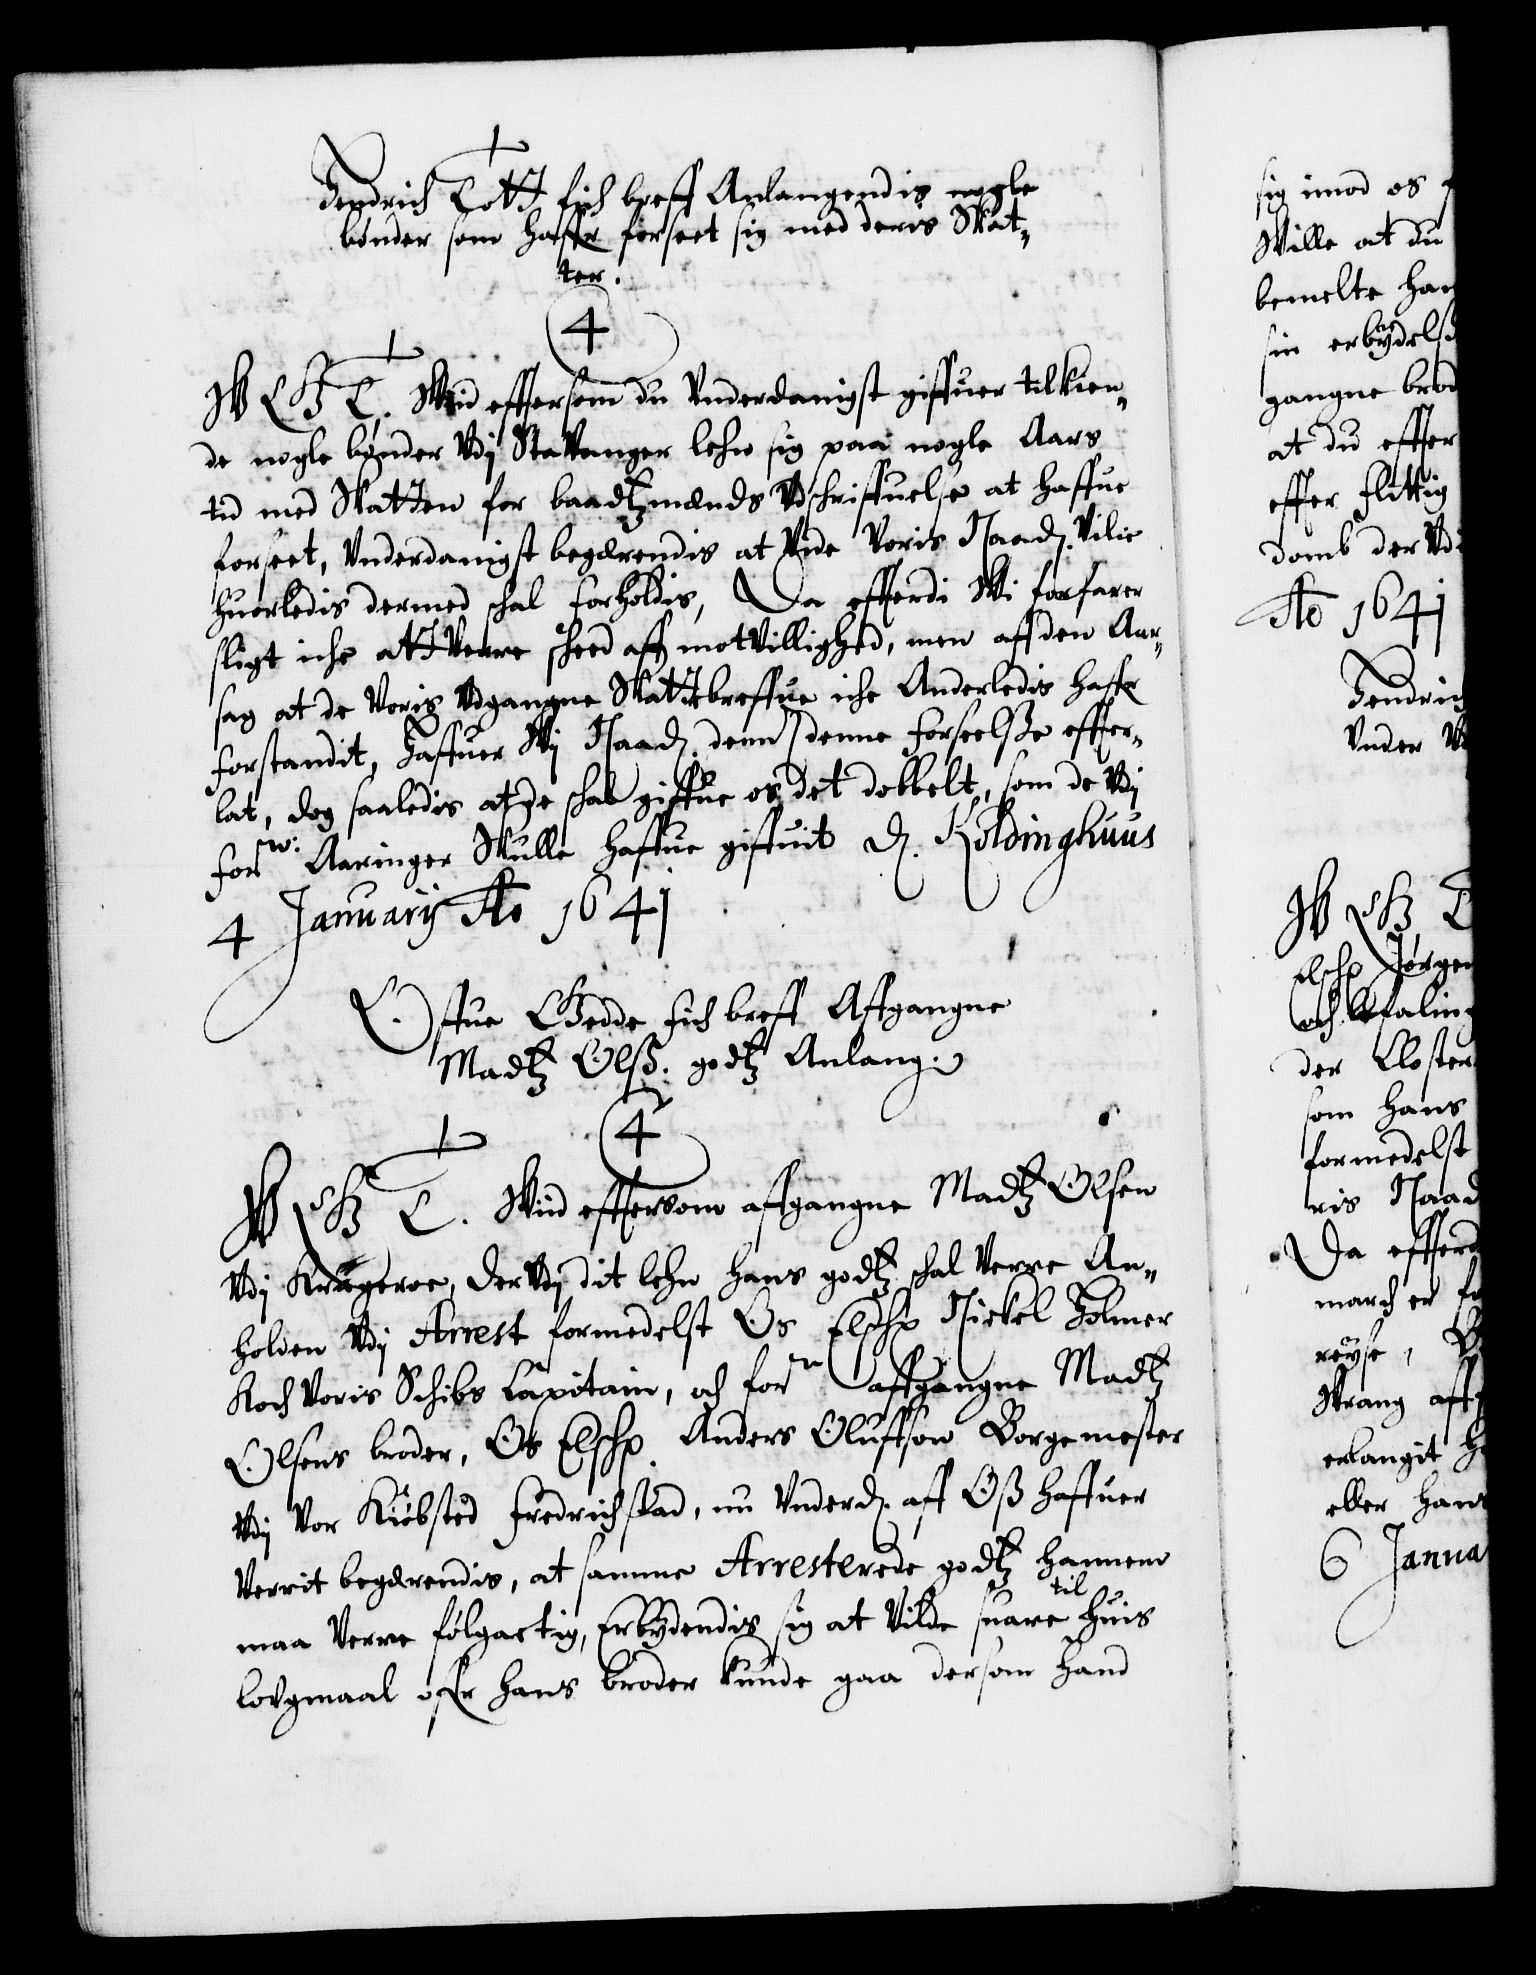 Hendrich Tott fich breff Anlangendis nogle
bønder som haffr forseet sig med deris Skat-
ter.
4
W G T. Wiid effterson du Vnderdanigst giffuer tilkien-
de nogle bønder Vdj Stavanger lehn sig paa nogle Aars
tid med Skatten for baadtzmænds Vdschriffuelse at haffue
forseet, Vnderdanigst begærendis at Vide Voris Naad. Vilie
huorledis dermed schal forholdis, Da effterdi Wi forfarer
sligt iche att Veære scheed aff motvillighed, men aff den Aar-
sag at de Voris Vdgangne Skattebreffue iche Anderledis haffr
forstandit, Haffuer Wj Naad. dennd denne forseelsse effter-
lat, dog saaledis at de schal giffue os det dobbelt, som de Vdj
forne: Aaringer Skulle haffue giffuit D. Koldinghuus
4 Januarij Ao 1641
Offue Giedde fich breff Affgangne
Madtz Olss. godtz Anlang:
4
W G T. Wiid effterson affgangne Madtz Olsen
Vdj Kragerøe, der Vdj dit lehn hans godtz schal Verre An-
holden Vdj Arrest formedelst Os Elschp Nickel Holmer
Koch Voris Schibs Capitain, och forne affgangne Madtz
Olsens broder, Os Elschp. Anders Oluffson Borgemester
Vdj Vor Kiøbsted Fredrichstad, nu Vnderd. aff Oss haffuer
Verrit begærendis, at samme Arresterede godtz hannem
maa Verre følgactig, Erbydendis sig at Vilde suare til huis
lovgmaal offr hans broder kunde gaa dersom hand
sig imod os
Wille at du
bemelte han
sin erbydelse
gangne brod
at du effter
effter flittig
domb der Vdi
Ao 1641
Hendrich
Vnder
W G T
Elschp Jørgen
och befaling
der Closter
som hans
formedelst
ris Naad
Da effterd
march er
reyse,
Wrang aff
erlangit
eller hans
6 Janua